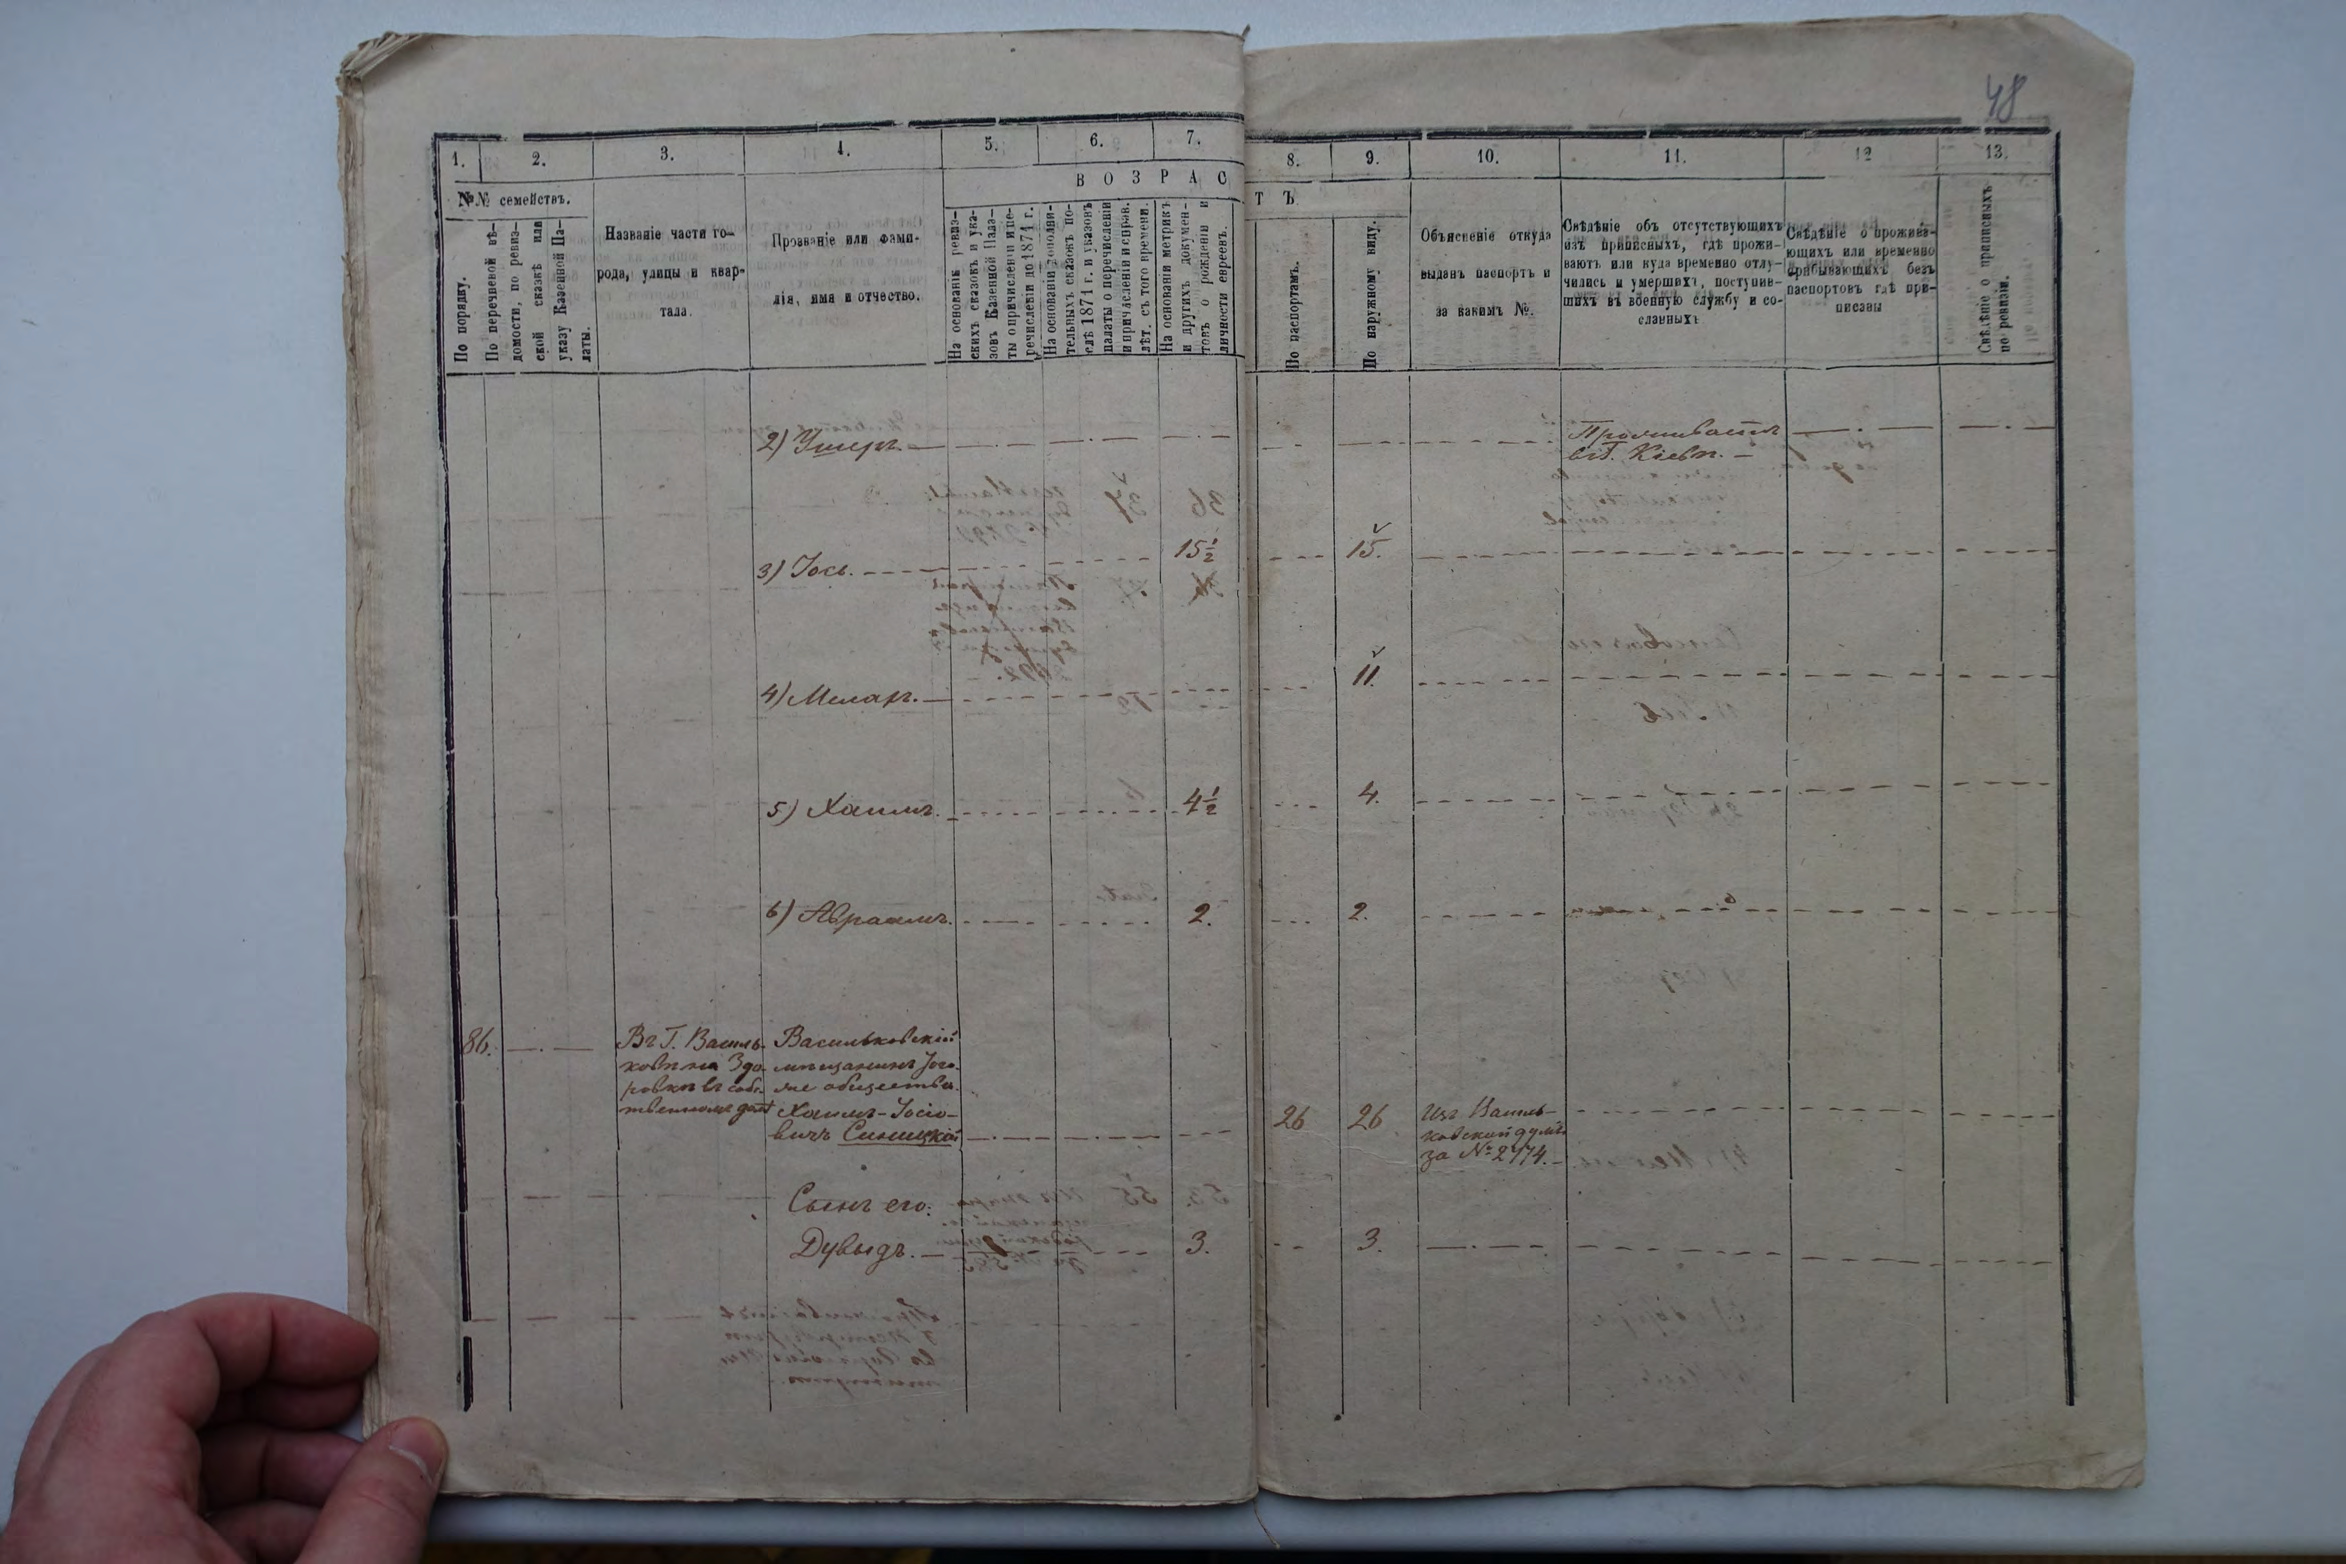 48
1. 2. 3. 4. 5. 6. 7. 8. 9. 10. 11. 12 13.
В О З Р А С Т Ъ
№№ семействъ.
По порядку.
По перечневой вѣ-
домости, по ревиз-
ской сказкѣ или
указу Казенной Па-
латы.
Названіе части го-
рода, улицы и квар-
тала.
Прозваніе или фами-
лія, имя и отчество.
На основаніи ревиз-
скихъ сказокъ и ука-
зовъ Казенной Пала-
ты о причисленіи и пе-
речисленіи до 1871 г.
На основаніи дополни-
тельныхъ сказокъ по-
слѣ 1871 г. и указовъ
палаты о перечисленіи
и причисленіи и справ.
лѣт. съ того времени.
На основаніи метрикъ
и другихъ докумен-
товъ о рожденіи и
личности евреевъ.
По паспортамъ.
По наружному виду.
Объясненіе откуда
выданъ паспортъ и
за какимъ №.
Свѣдѣніе объ отсутствующихъ
изъ приписныхъ, гдѣ прожи-
ваютъ или куда временно отлу-
чились и умершихъ, поступив-
шихъ въ военную службу и со-
сланныхъ
Свѣдѣніе о прожива-
ющихъ или временно
прибывающихъ безъ
паспортовъ гдѣ при-
писаны
Свѣдѣніе о приписныхъ
по ревизіи.
2) Ушеръ. Проживаетъ
въ г. Кіевѣ.
3) Іось. 15½ 15.
4) Меларъ. 11.
5) Хаимъ. 4½ 4.
6) Авраамъ. 2. 2.
86. Въ Г. Василь-
ковѣ на Здо-
ровкѣ въ собс-
твенномъ домѣ
Васильковскій
мѣщанинъ Того-
же общества.
Хаимъ-Іосіо-
вичъ Синицкій 26 26
Изъ Василь-
ковской думы
за № 2774.
Сынъ его:
Дувыдъ. 3. 3.